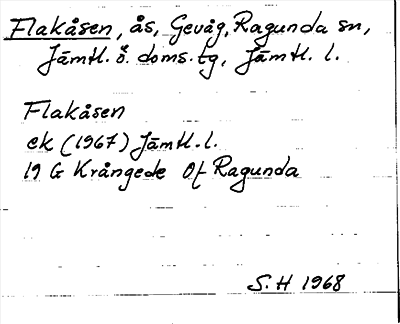 Flakåsen, ås, Gevåg, Ragunda sn,
Jämtl. ö. doms. tg, Jämtl. l.
Flakåsen
ek (1967) Jämtl. l.
19 G Krångede Of Ragunda
S. H 1968